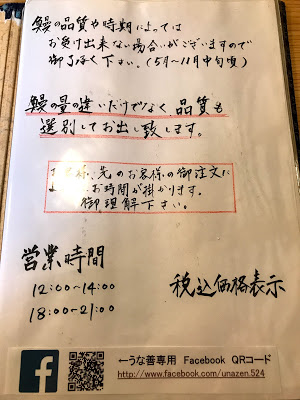 鰻の品質や時期によっては
お受け出来ない場合がございますので
御了承下さい。(5月〜11月中旬頃)
鰻の量の違いだけでなく、品質も
選別してお出し致します。
先のお客様の御注文に
お時間が掛かります。
御理解下さい。
営業時間
12:00〜14:00
18:00〜21:00
税込価格表示
f
←うな善専用 Facebook QRコード
http://www.facebook.com/unazen.524